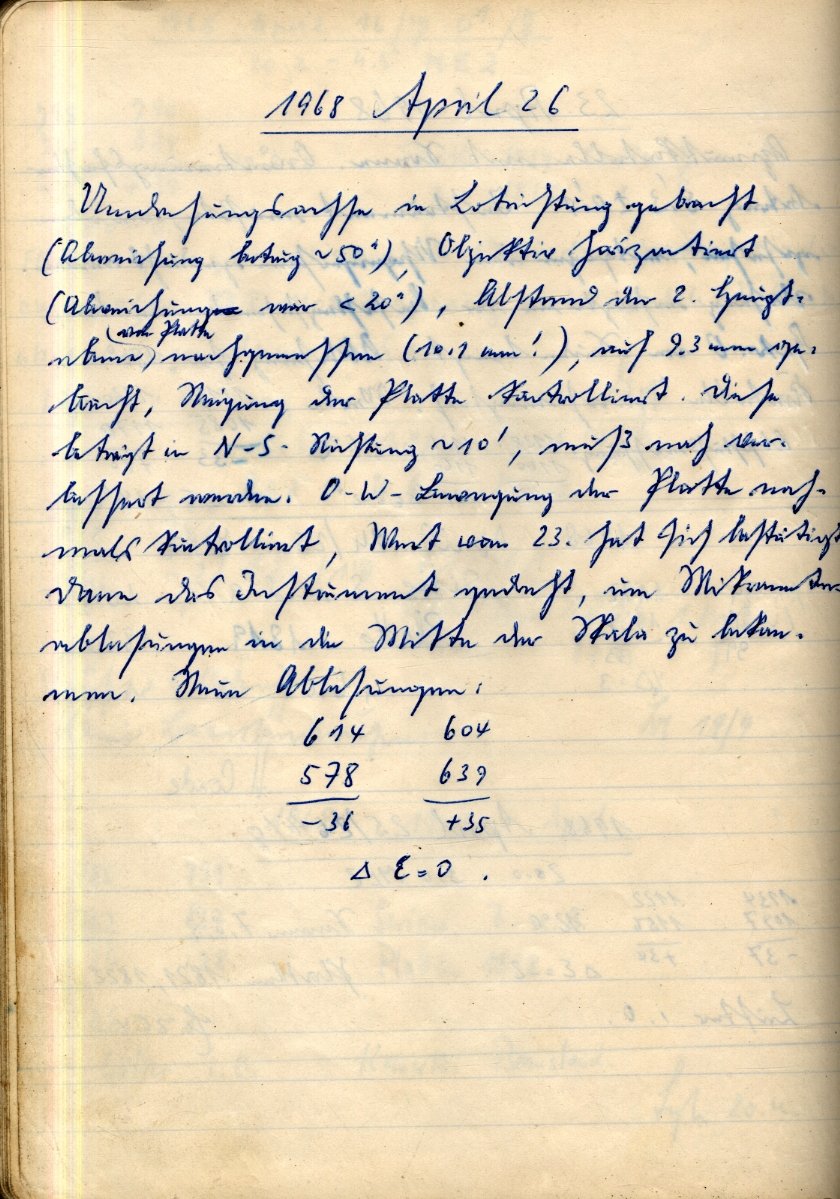 1968 April 26
Umdrehungsachse in Lotrichtung gebracht
(Abweichung betrug ~50"), Objektiv horizontiert
(Abweichung war < 20"), Abstand der 2. Haupt-
(von Platte)
ebene nachgemessen (10.1 mm!), auf 9.3 mm ge-
bracht, Neigung der Platte kontrolliert. Diese
beträgt in N-S-Richtung ~10', muß noch ver-
bessert werden. O-W-Bewegung der Platte noch-
mals kontrolliert, Wert vom 23. hat sich bestätigt
Dann das Instrument gedreht, um Mikrometer-
ablesungen in die Mitte der Skala zu bekom-
men. Neue Ablesungen:
614 604
578 639
-36 +35
Δ ε = 0 .